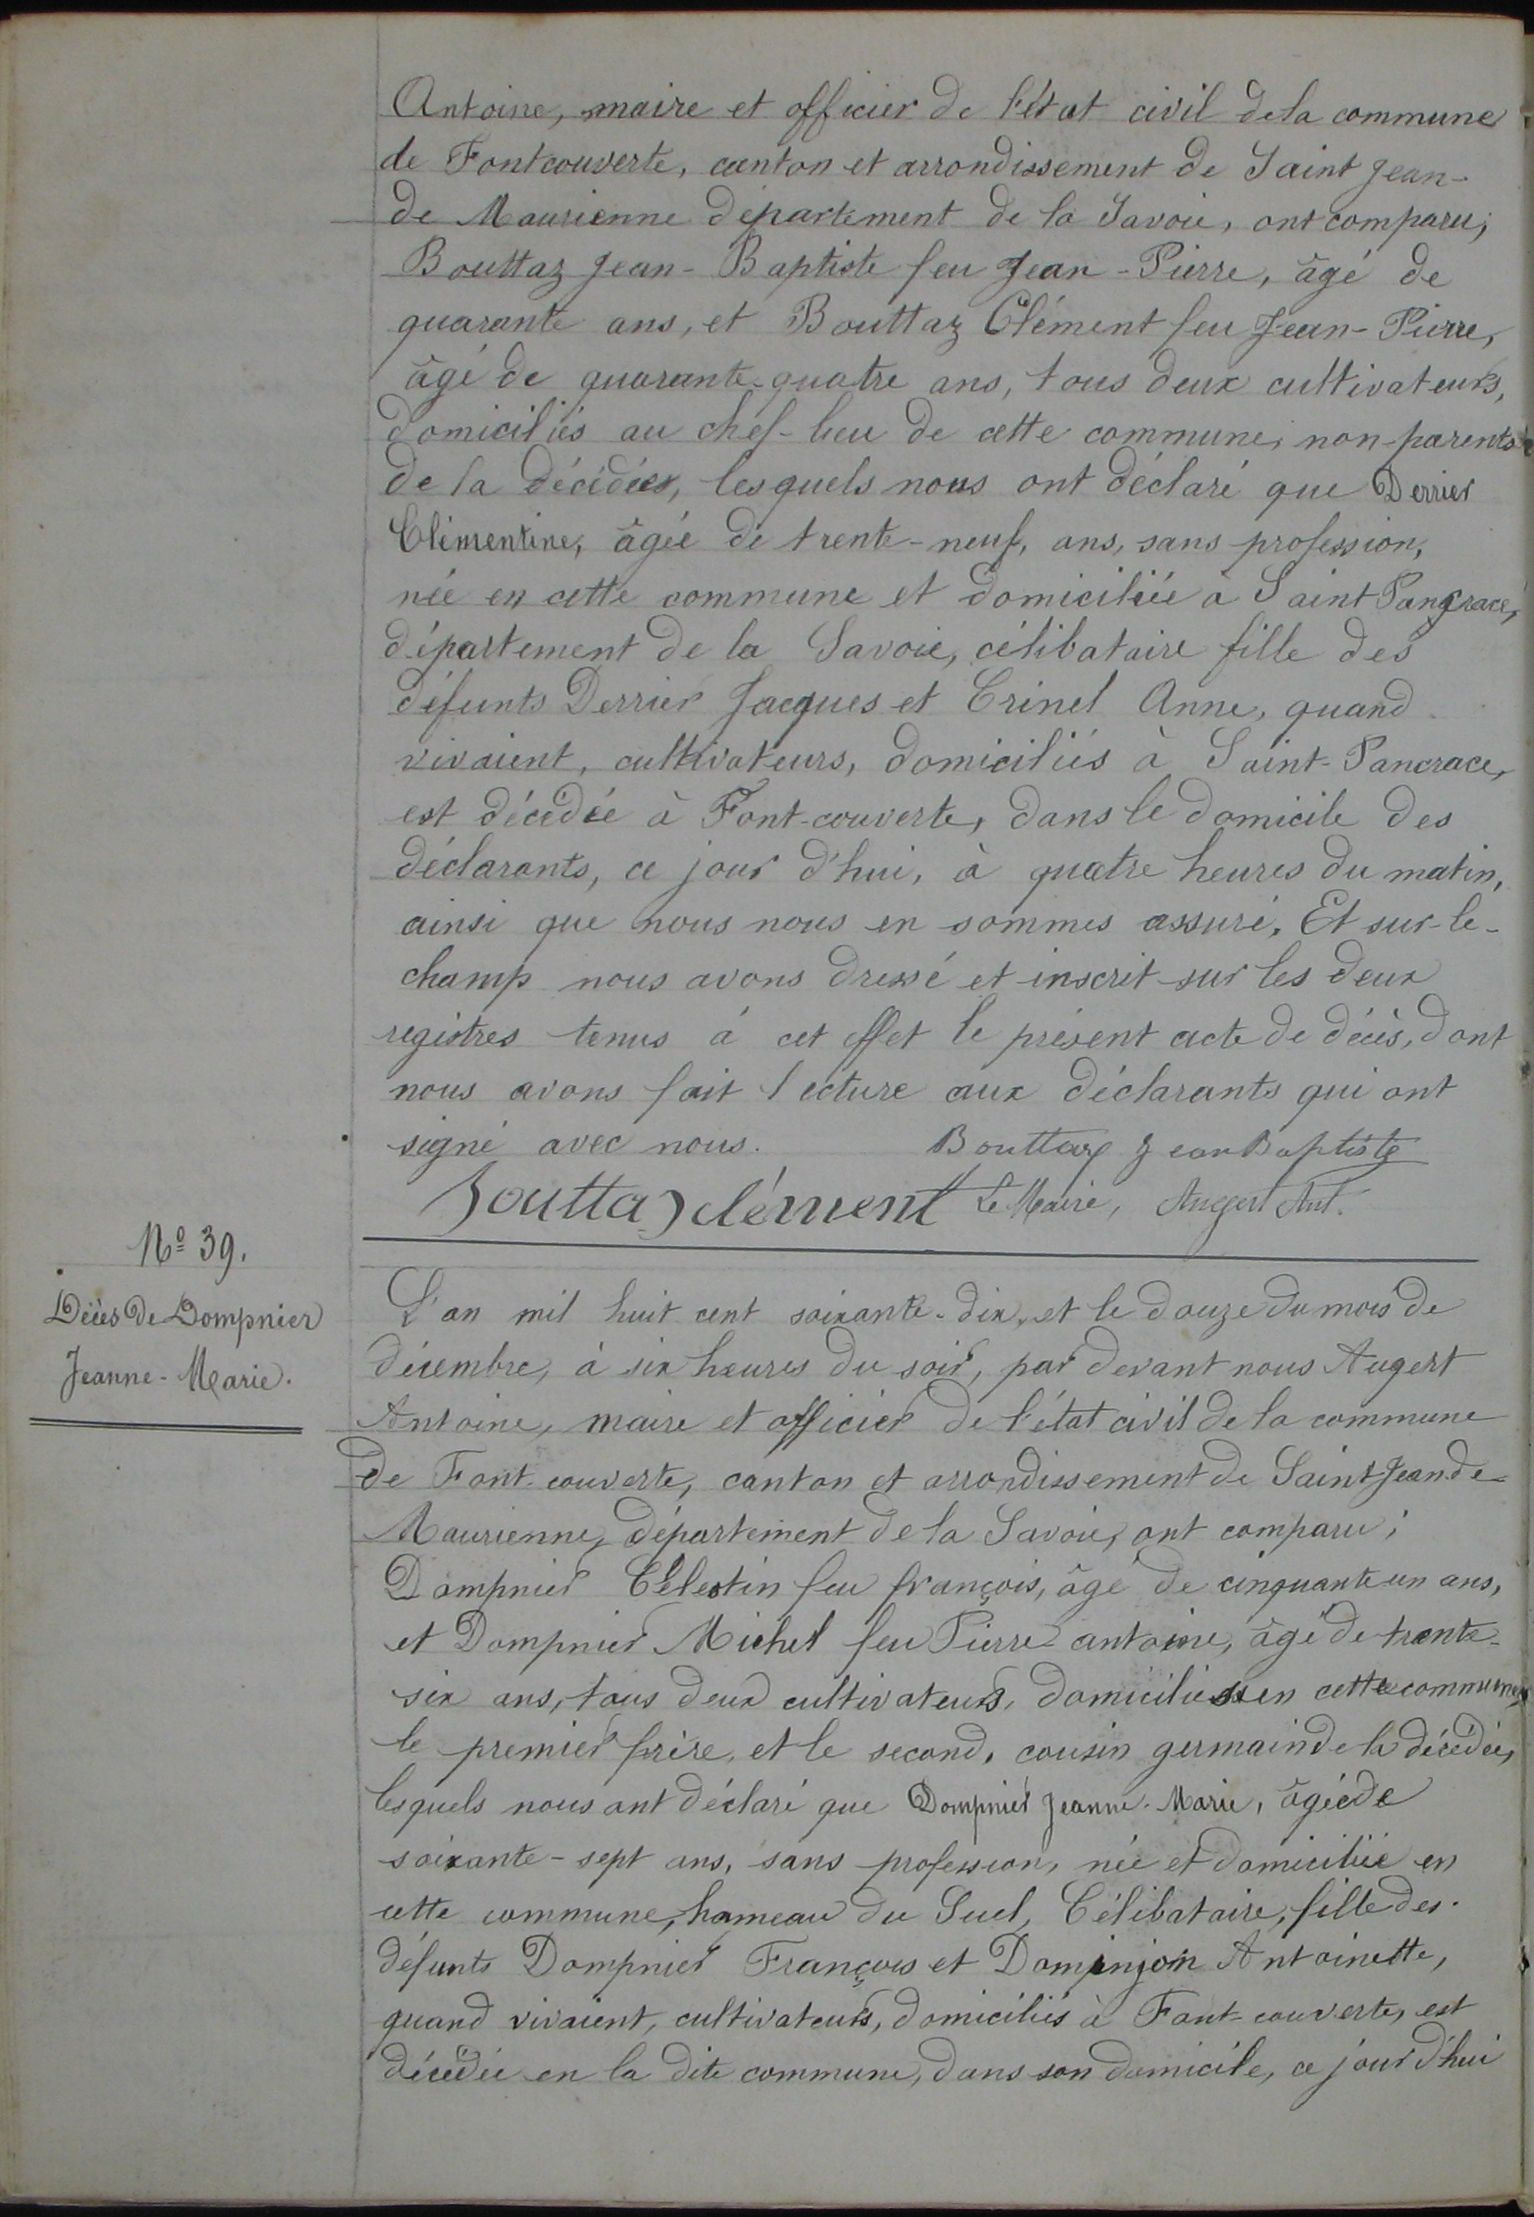 Antoine, maire et officier de l'état civil de la commune
de Fontcouverte, canton et arrondissement de Saint Jean-
de Maurienne département de la Savoie, ont comparu;
Bouttaz Jean-Baptiste feu Jean-Pierre, âgé de
quarante ans, et Bouttaz Clément feu Jean-Pierre,
âgé de quarante-quatre ans, tous deux cultivateurs,
domiciliés au chef-lieu de cette commune, non-parents
de la décédée, lesquels nous ont déclaré que Derrier
Clémentine, âgée de trente-neuf, ans, sans profession,
née en cette commune et domiciliée à Saint Pancrace,
département de la Savoie, célibataire fille des
défunts Derrier Jacques et Crinel Anne, quand
vivaient, cultivateurs, domiciliés à Saint-Pancrace,
est décédée à Font-couverte, dans le domicile des
déclarants, ce jour d'hui, à quatre heures du matin,
ainsi que nous nous en sommes assuré. Et sur-le-
champ nous avons dressé et inscrit sur les deux
registres tenus à cet effet le présent acte de décès, dont
nous avons fait lecture aux déclarants qui ont
signé avec nous. Bouttaz Jean Baptiste
Bouttaz clément Le Maire, Augert Ant.
Nº 39.
Décès de Dompnier
Jeanne-Marie.
L'an mil huit cent soixante-dix, et le douze du mois de
décembre, à six heures du soir, par devant nous Augert
Antoine, maire et officier de l'état civil de la commune
de Font-couverte, canton et arrondissement de Saint-Jean de-
Maurienne, département de la Savoie, ont comparu;
Dompnier Célestin feu françois, âgé de cinquante un ans,
et Dompnier Michel feu Pierre antoine, âgé de trente-
six ans, tous deux cultivateurs, domiciliés en cette commune,
le premier frère, et le second, cousin germain de la décédée,
lesquels nous ont déclaré que Dompnier Jeanne-Marie, âgée de
soixante-sept ans, sans profession, née et domiciliée en
cette commune, hameau du Suel, Célibataire, fille des
défunts Dompnier François et Dominjon Antoinette,
quand vivaient, cultivateurs, domiciliés à Font-couverte, est
décédée en la dite commune, dans son domicile, ce jour d'hui